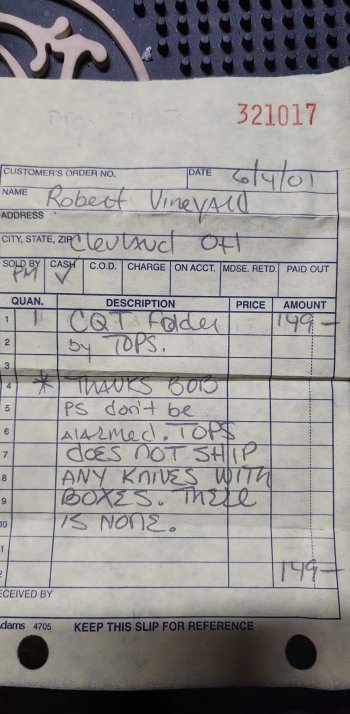 321017
CUSTOMER'S ORDER NO. DATE 6/4/01
NAME Robert Vineyard
ADDRESS
CITY, STATE, ZIP Clevlaud OH
SOLD BY CASH C.O.D. CHARGE ON ACCT. MDSE. RETD. PAID OUT
PM ✓
QUAN. DESCRIPTION PRICE AMOUNT
1 1 CQT Folder 149-
2 by TOPS.
3
4 * THANKS BOB
5 PS don't be
6 Alarmed. TOPS
7 does NOT SHIP
8 ANY KNIVES WITH
9 BOXES. THERE
10 IS NONE.
1
2 149-
ECEIVED BY
dams 4705 KEEP THIS SLIP FOR REFERENCE